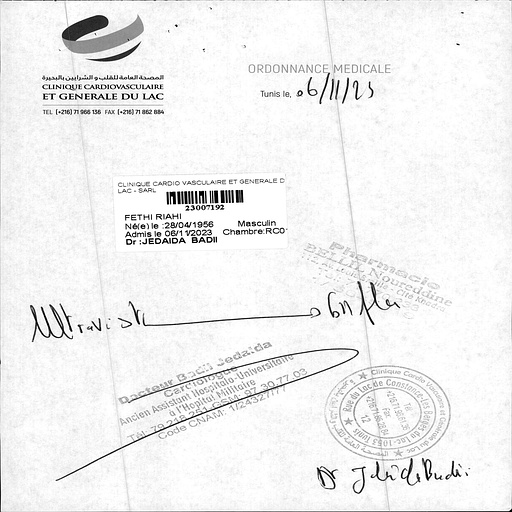 المصحة العامة للقلب و الشرايين بالبحيرة
CLINIQUE CARDIOVASCULAIRE
ET GENERALE DU LAC
TEL (+216) 71 966 136 FAX (+216) 71 862 884
ORDONNANCE MEDICALE
Tunis le, 06/11/23
CLINIQUE CARDIO VASCULAIRE ET GENERALE D
LAC - SARL
23007192
FETHI RIAHI
Né(e) le :28/04/1956 Masculin
Admis le 06/11/2023 Chambre:RC0
Dr :JEDAIDA BADII
Pharmacie
Noureddine
Ultravist
Docteur Badii Jedaida
Cardiologue
Ancien Assistant Hospitalo-Universitaire
à l'Hopital Militaire
Code CNAM:
Clinique Cardio Vasculaire et Générale du Lac
Rue du Lac de Constance
Dr Jedaida Badii